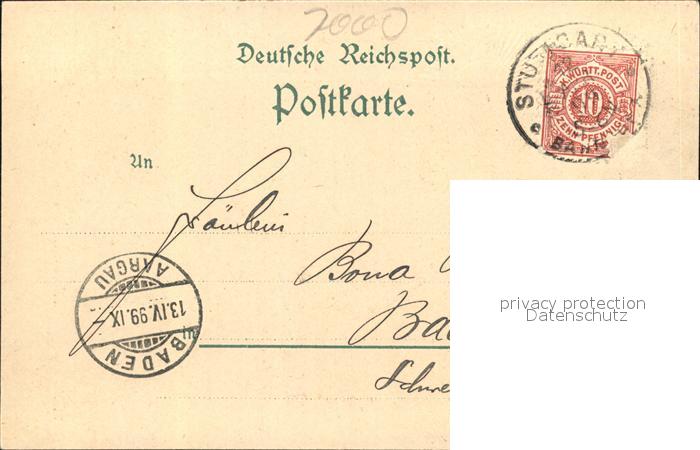 7000
Deutsche Reichspost.
Postkarte.
STUTTGART
K. WÜRTT. POST
10
ZEHN PFENNIG
BAHN
An
Fräulein
Bona
in
Schwe
BADEN
13.IV.99.IX
AARGAU
privacy protection
Datenschutz